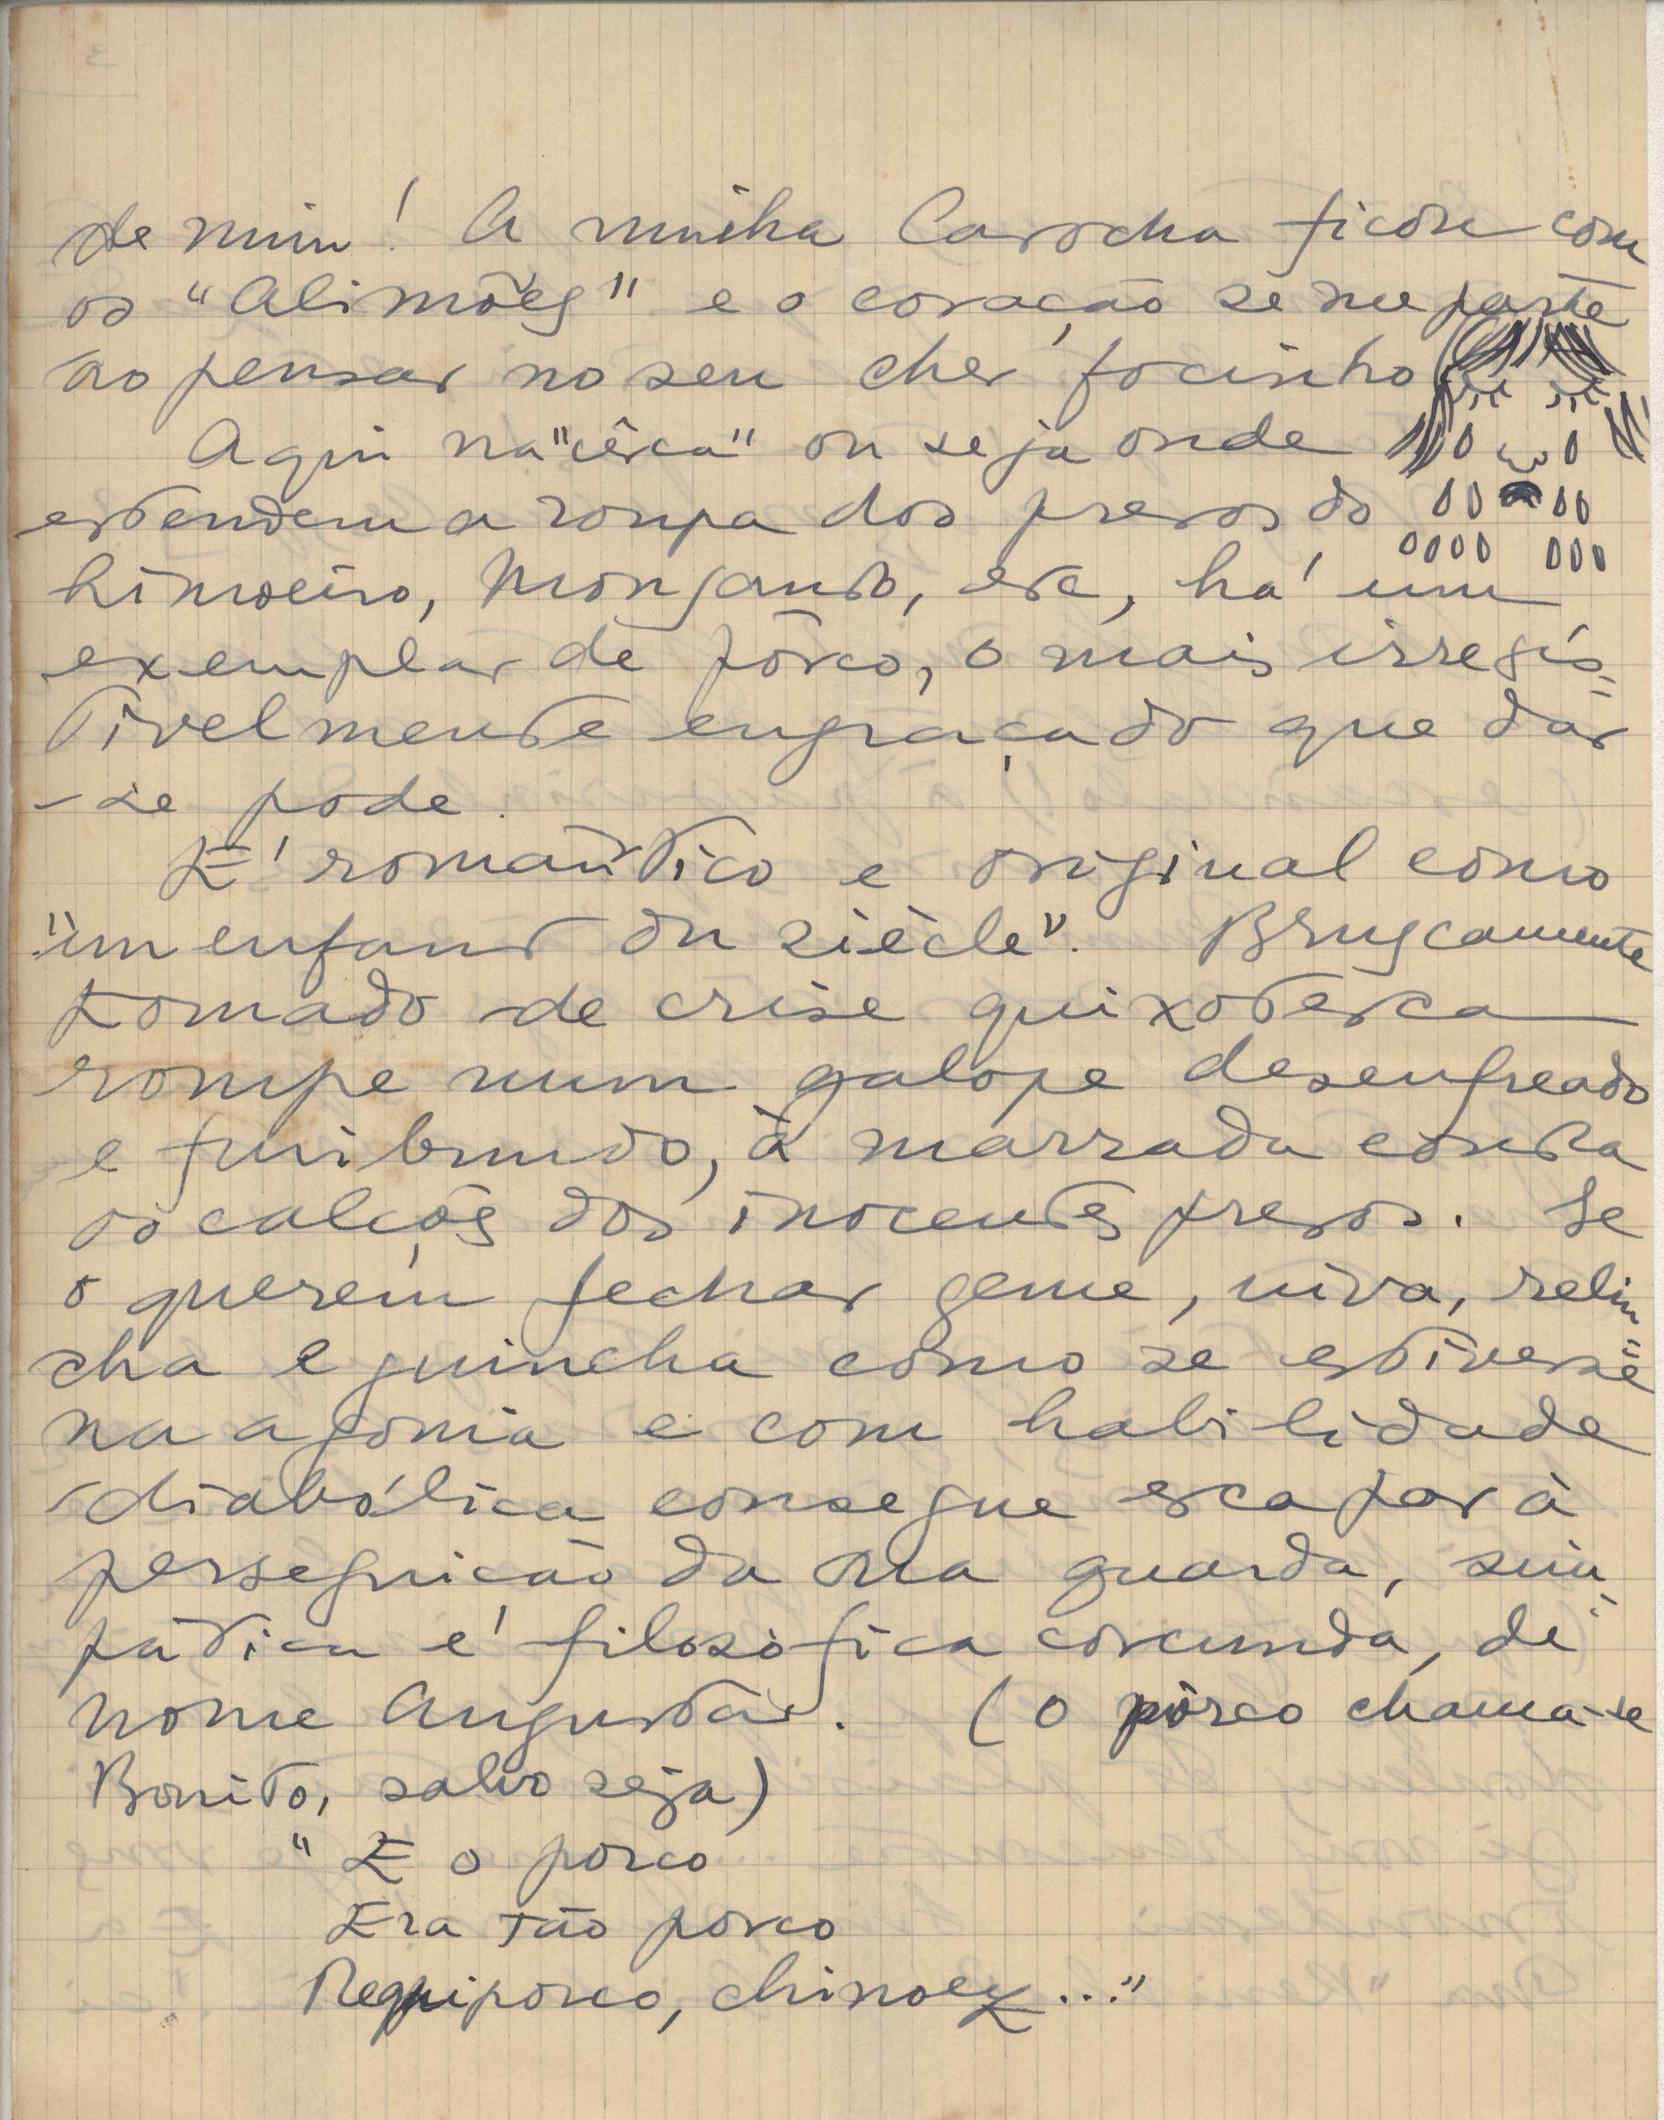 de mim! A minha Carocha ficou com
os "Alimões" e o coração se me parte
ao pensar no seu cher focinho
Aqui na "cêrca" ou seja onde
estendem a roupa dos presos do
Limoeiro, Monsanto, etc, há um
exemplar de pôrco, o mais irresis=
tivelmente engraçado que dar
-se pode.
É romântico e original como
"un enfant du siècle". Bruscamente
tomado de crise quixotesca
rompe num galope desenfreado
e furibundo, à marrada contra
os calções dos inocentes presos. Se
o querem fechar geme, uiva, relin=
cha e guincha como se estivesse
na agonia e com habilidade
diabólica consegue escapar à
perseguição da sua guarda, sim=
pática e filosófica corcunda, de
nome Augusta. (O pôrco chama-se
Bonito, salvo seja)
"E o porco
Era tão porco
Requiporco, chinoez..."